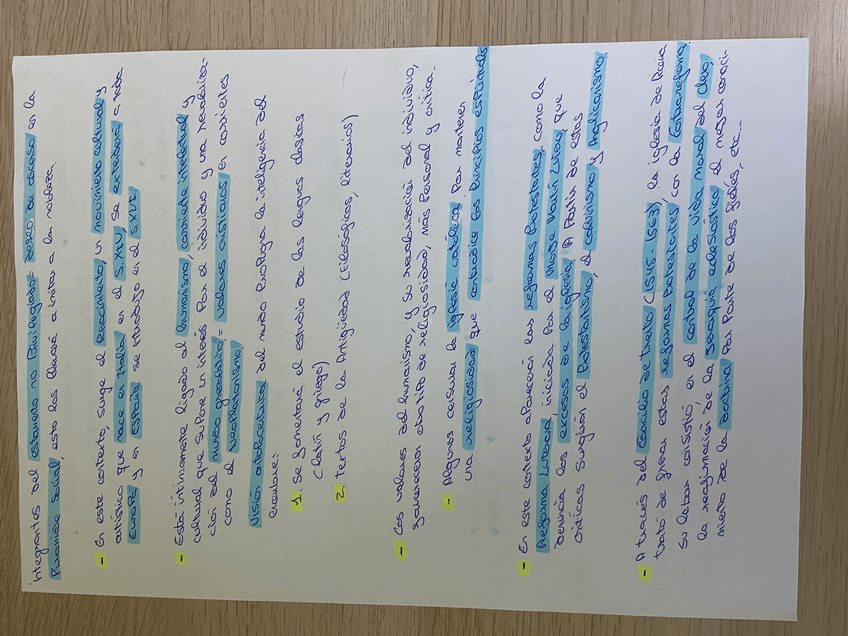 integrantes del estamento no Privilegiado = deseo de ascenso en la
Piramide Social, esto les llevará a imitar a la nobleza.
- En este contexto, surge el Renacimiento, un movimiento cultural y
artístico que nace en Italia en el S.XIV, se extenderá a toda
Europa y en España se introdujo en el S.XVI.
- Está intimamente ligado al humanismo, corriente intelectual y
cultural que supone un interés Por el individuo y una revaloriza-
ción del mundo grecolatino = valores cristianos en corrientes
como el neoplatonismo
Visión antropocéntrica del mundo Prodigna la inteligencia del
hombre:
1. Se fomentará el estudio de las lenguas clásicas
(latín y griego)
2. Textos de la Antigüedad (Filosóficos, literarios)
- Los valores del humanismo, y su revalorización del individuo,
generaron otro tipo de religiosidad, más Personal y crítica.
- Algunos acusan la iglesia católica Por mantener
una religiosidad que contradice los Principios espirituales
- En este contexto aparecerán las reformas Protestantes, como la
Reforma Luterana, iniciada Por el monje Martín Lutero, que
denuncia los excesos de la iglesia. A Partir de estas
críticas surgirán el Protestantismo, el calvinismo y Anglicanismo.
- A través del Concilio de trento (1545-1563), la iglesia de Roma
trató de frenar estas reformas Protestantes, con la Contrarreforma.
su labor consistió, en el control de la vida moral del clero,
la reafirmación de la Jerarquía eclesiástica, el mayor conoci-
miento de la doctrina Por Parte de los fieles, etc...